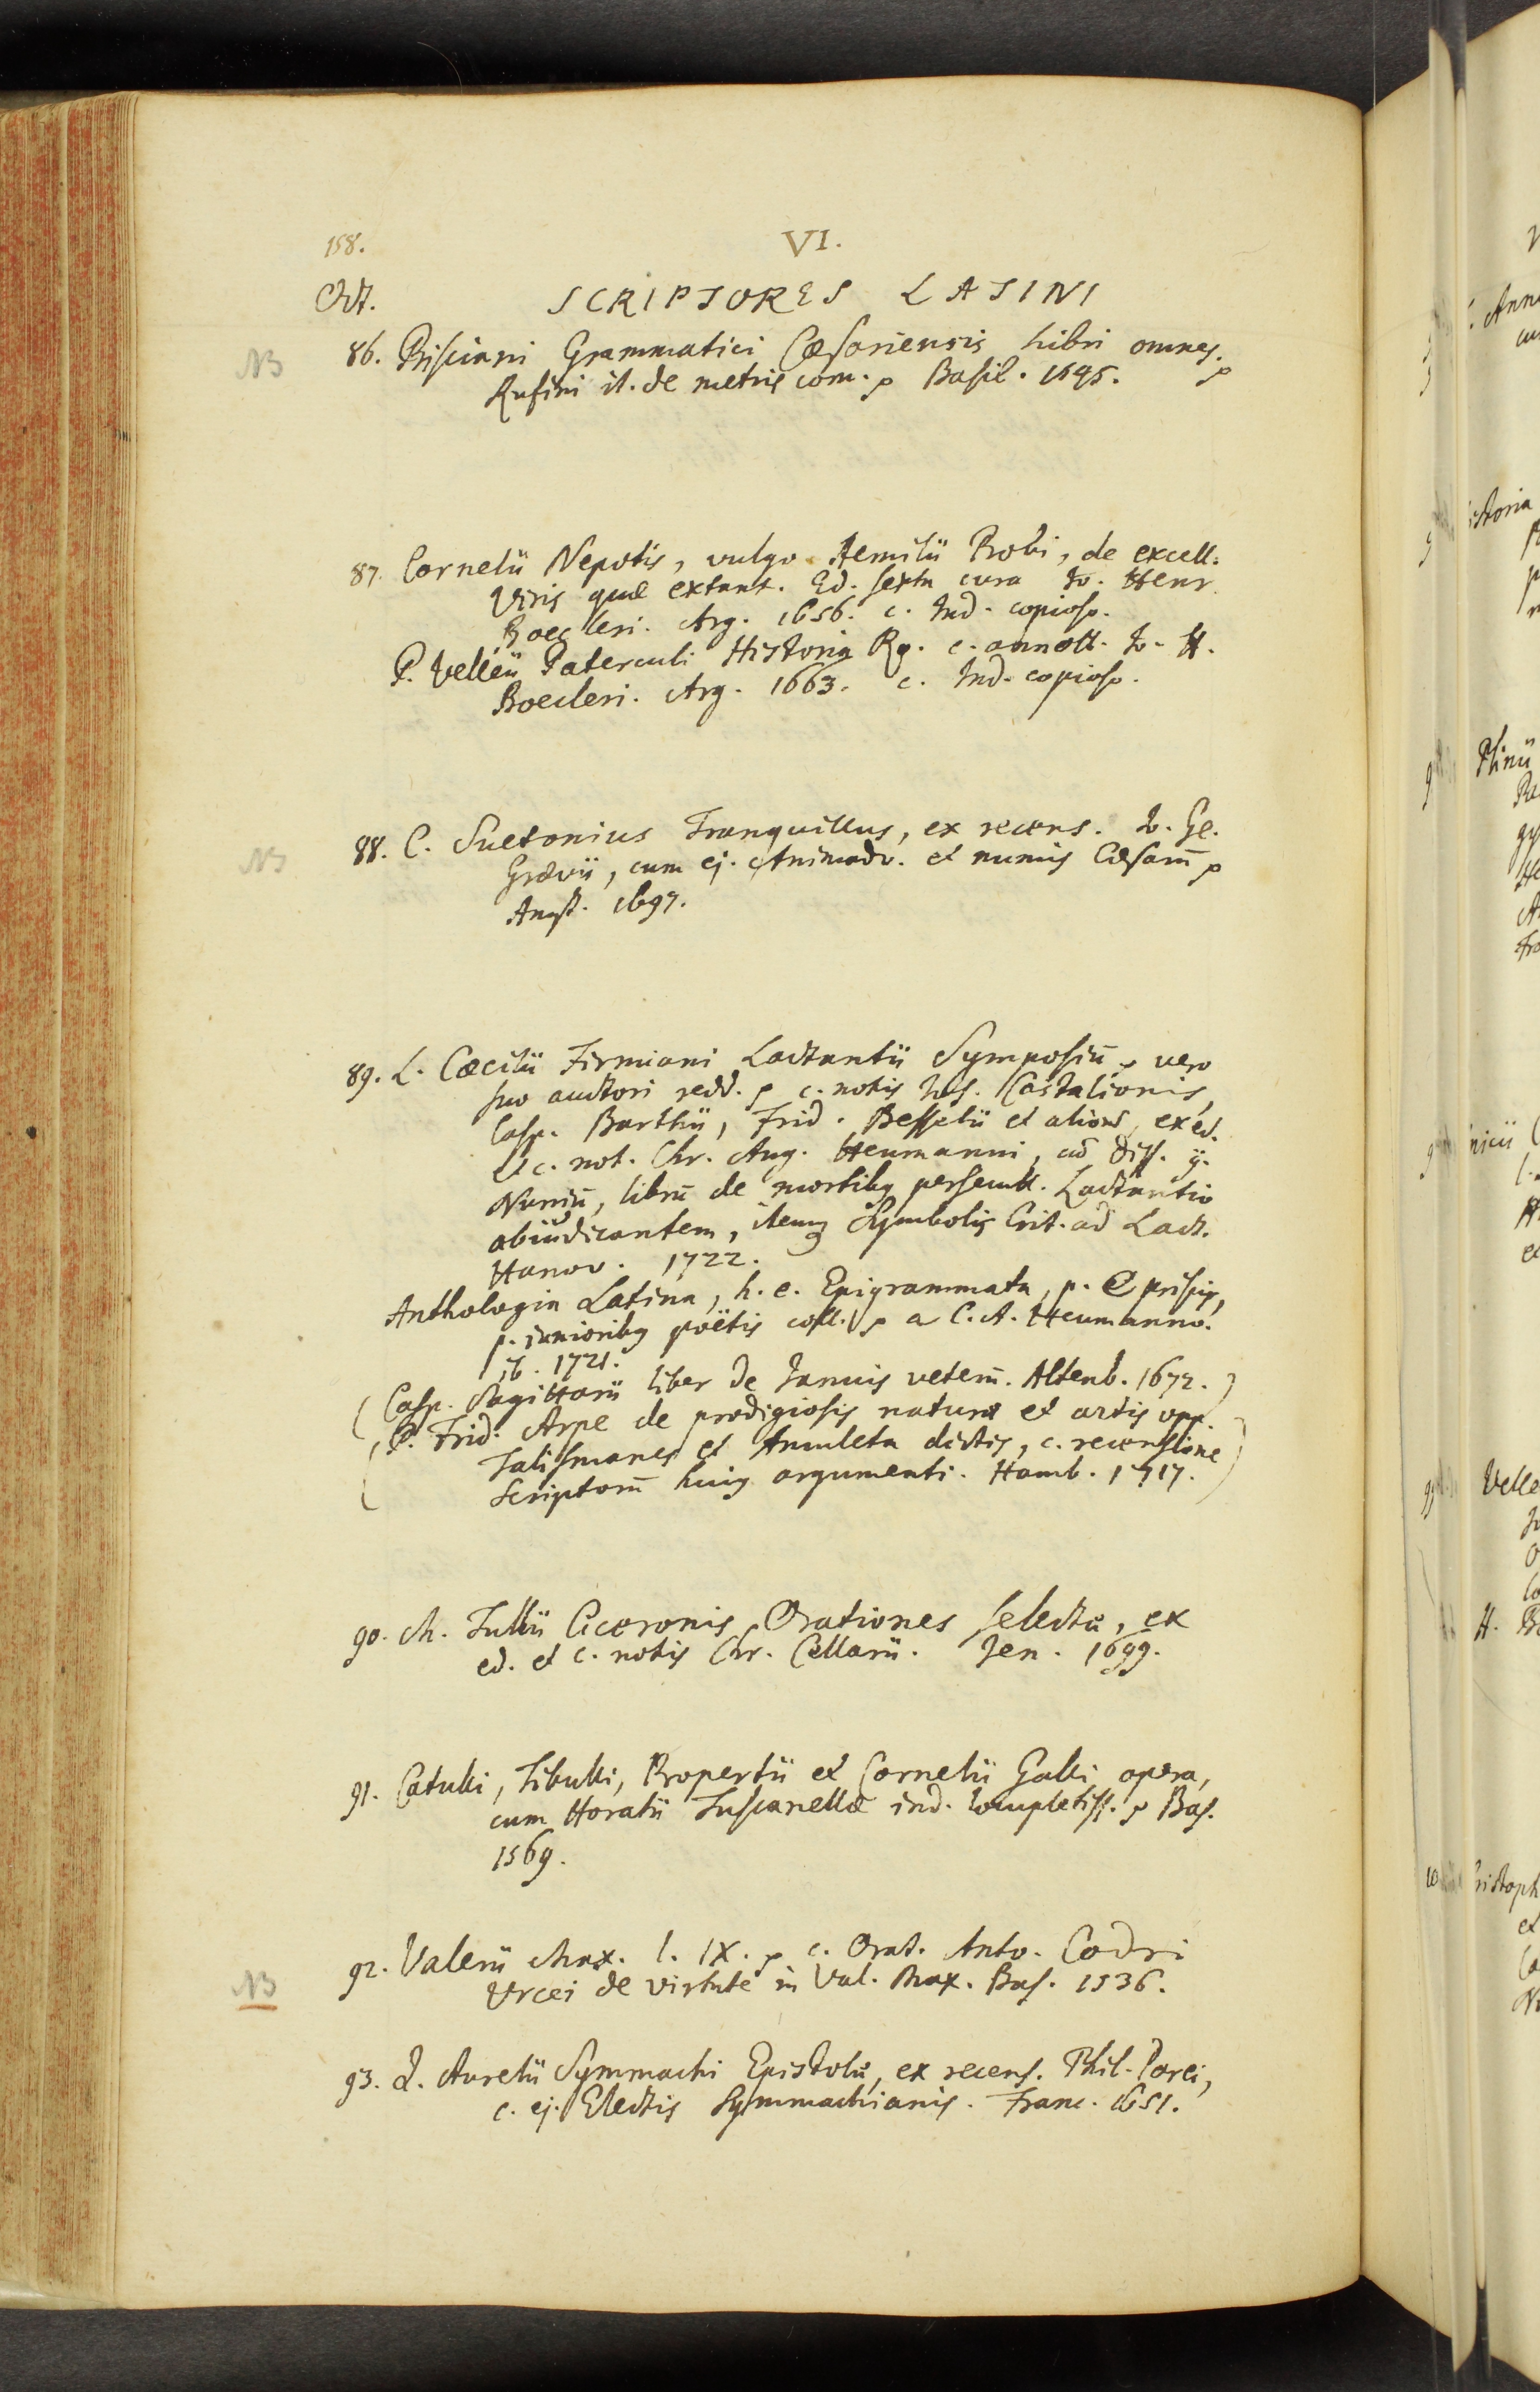 158.
VI.
Oct.
SCRIPTORES LATINI
NB
86. Prisciani Grammatici Cæsariensis libri omnes.
Rufini it. de metris com. Basil. 1545.
87. Cornelii Nepotis, vulgo Aemilii Probi, de excell.
Viris quæ extant. Ed. sexta cura Jo. Henr.
Boecleri. Arg. 1656. c. Ind. copioso.
P. Velleii Paterculi Historia Ro. c. annott. Jo. H.
Boecleri. Arg. 1663. c. Ind. copioso.
NB
88. C. Suetonius Tranquillus, ex recens. Jo. Ge.
Grævii, cum ej. Animadv. et numis Cæsarū
Amst. 1697.
89. L. Cæcilii Firmiani Lactantii Symposiū, vero
suo auctori redd. c. notis Jos. Castalionis,
Casp. Barthii, Frid. Besselii et alior, ex ed.
et c. not. Chr. Aug. Heumanni, cū Diss.
librū de mortibq persecutt. Lactantio
abiudicantem, itemq Symbolis Crit. ad Lact.
Hanov. 1722.
Anthologia Latina, h. e. Epigrammata, p. a priscis,
p. a iunioribq poëtis coll. a C. A. Heumanno.
ib. 1721.
(Casp. Sagittarii liber de Januis veterū. Altenb. 1672.)
(P. Frid. Arpe de prodigiosis naturæ et artis opp.
Talismanes et Amuleta dictis, c. recensione
Scriptorū huiq argumenti. Hamb. 1717.)
90. M. Tullii Ciceronis Orationes selectæ, ex
ed. et c. notis Chr. Cellarii. Jen. 1699.
91. Catulli, Tibulli, Propertii et Cornelii Galli opera,
cum Horatii Tuscanellæ ind. locupletiss. Bas.
1569.
NB
92. Valerii Max. l. IX. c. Orat. Anto. Codri
Vrcei de virtute in Val. Max. Bas. 1536.
93. Q. Aurelii Symmachi Epistolæ, ex recens. Phil. Parei,
c. ej. Electis Symmachianis. Franc. 1651.